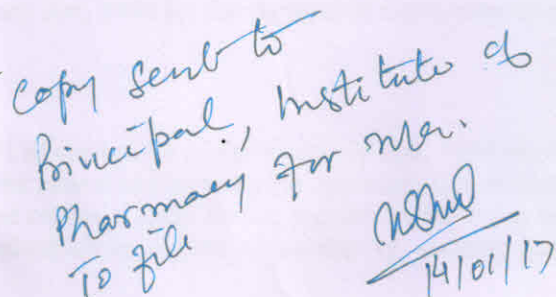 Copy sent to
Principal, Institute of
Pharmacy for infor.
To file
14/01/17